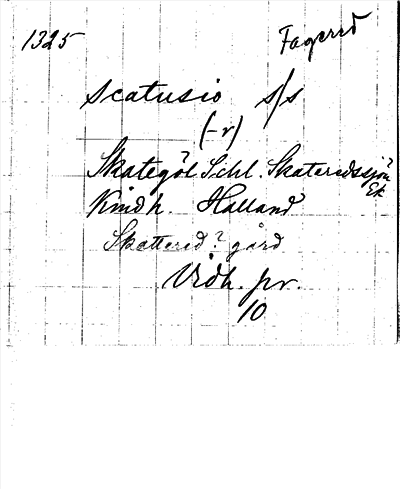 1325 Fagered
scatusio s/s
(-r)
Skategöl Schl. Skateredssjön
Ek
Kindh. Halland
Skatterid? gård
Vidh. pr.
10